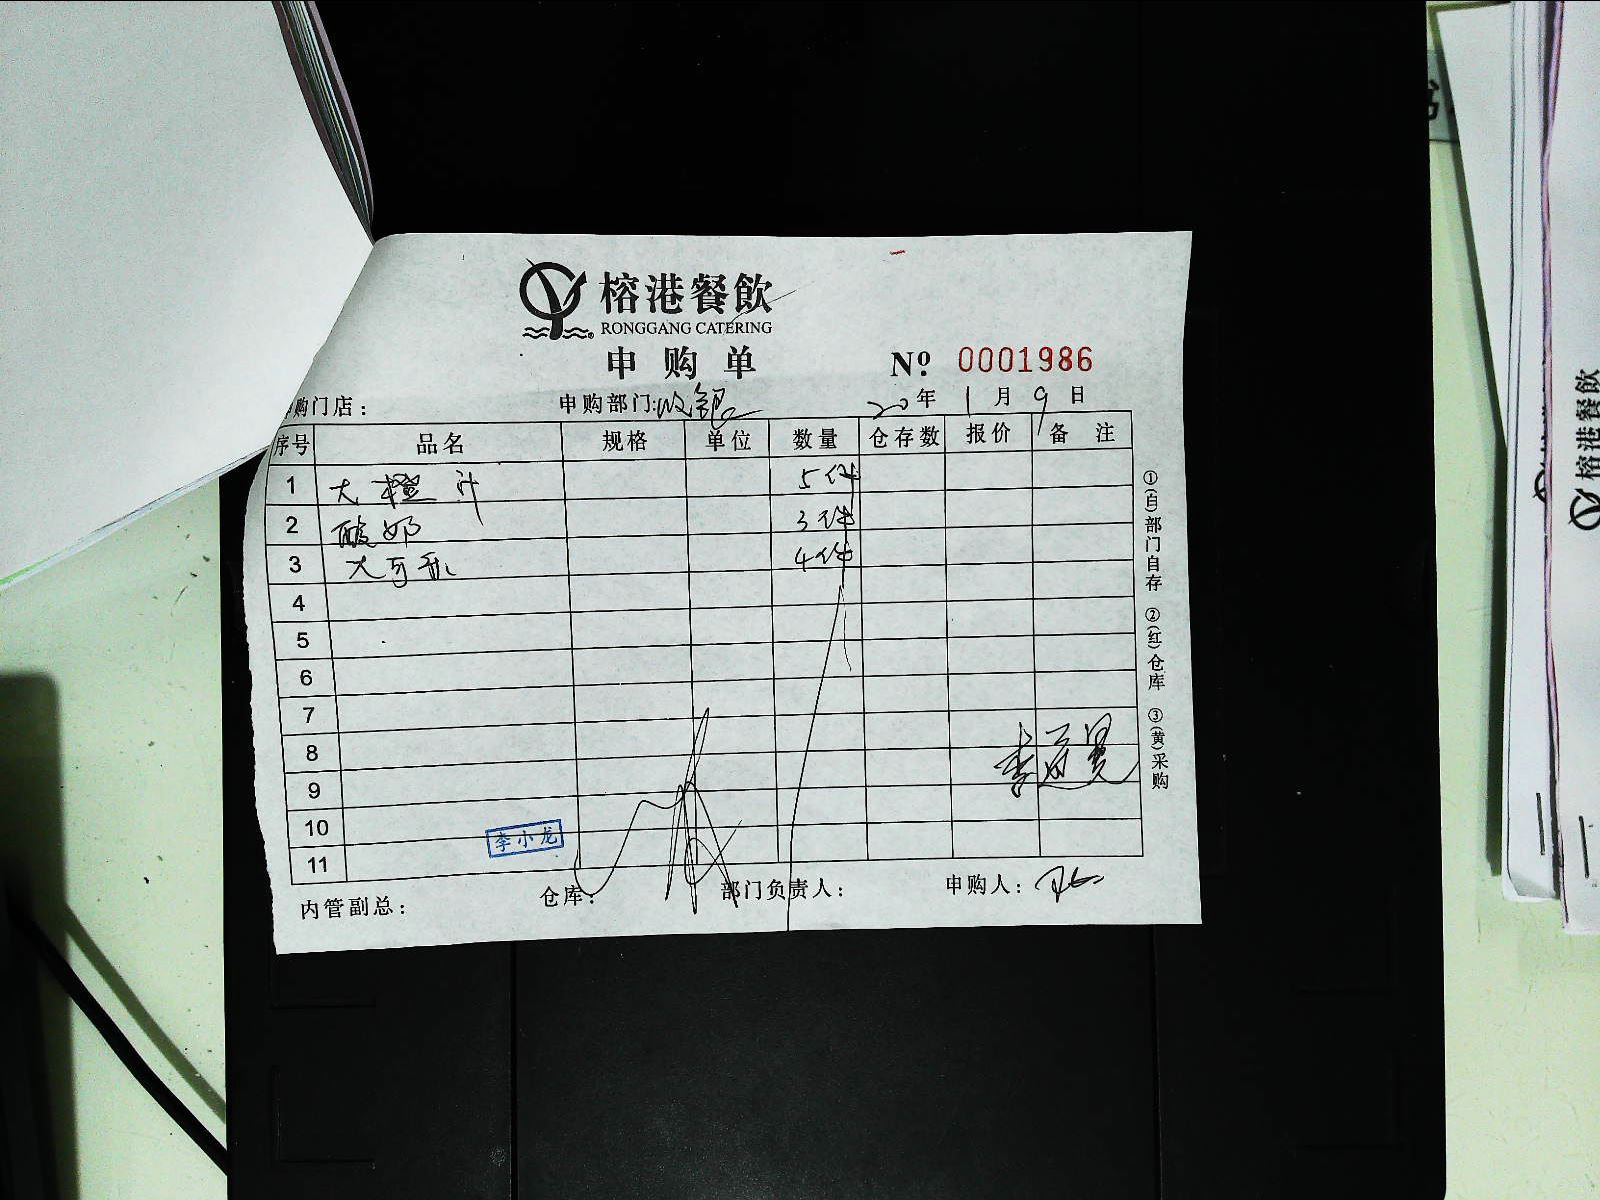 榕港餐飲
RONGGANG CATERING
申购单
№ 0001986
购门店： 申购部门: 收银 20年1月9日
序号 品名 规格 单位 数量 仓存数 报价 备注
1 大橙汁 5件
2 酸奶 3件
3 大可乐 4件
4
5
6
7
8
9
10
11
李小龙
内管副总： 仓库： 部门负责人： 申购人：
①(白)部门自存 ②(红)仓库 ③(黄)采购
榕港餐飲